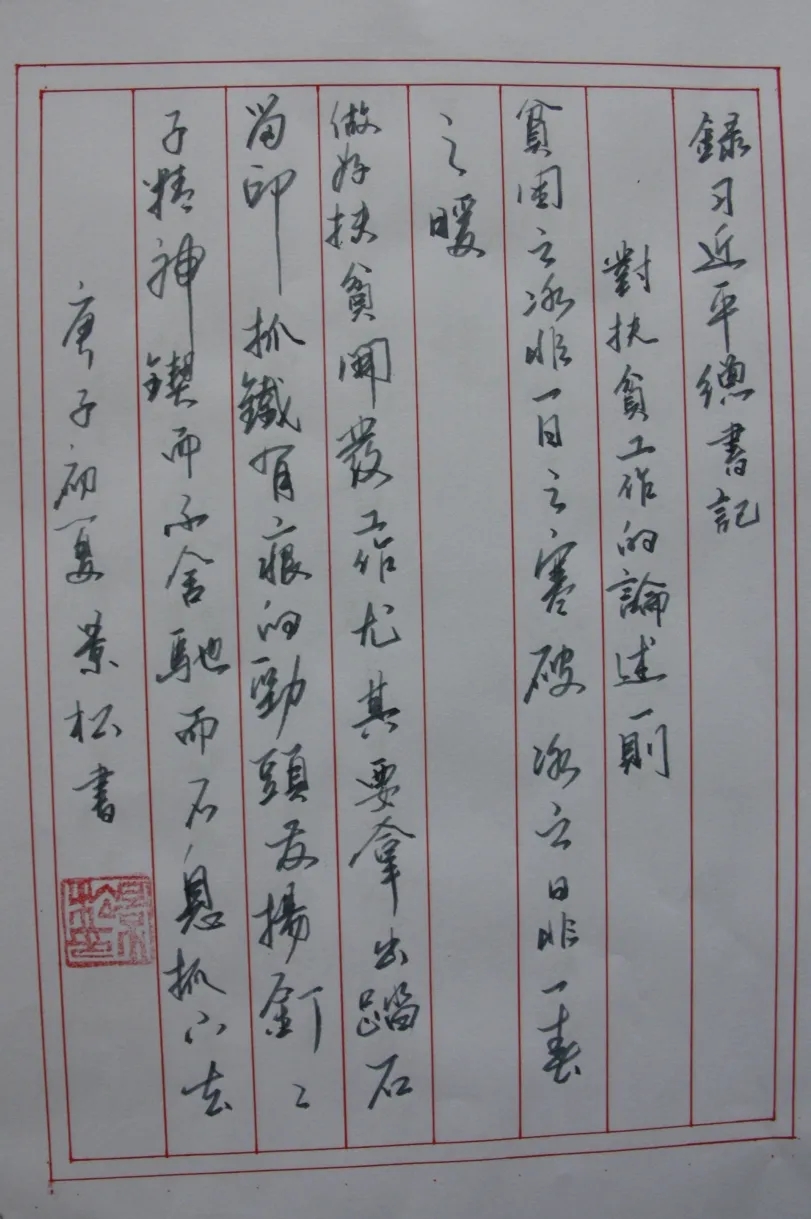 録习近平總書記
對扶貧工作的論述一則
貧困之冰非一日之寒破冰之日非一春
之暖
做好扶貧開發工作尤其要拿出踏石
留印抓鐵有痕的勁頭发揚釘〻
子精神鍥而不舍馳而不息抓下去
庚子初夏景松書
景松